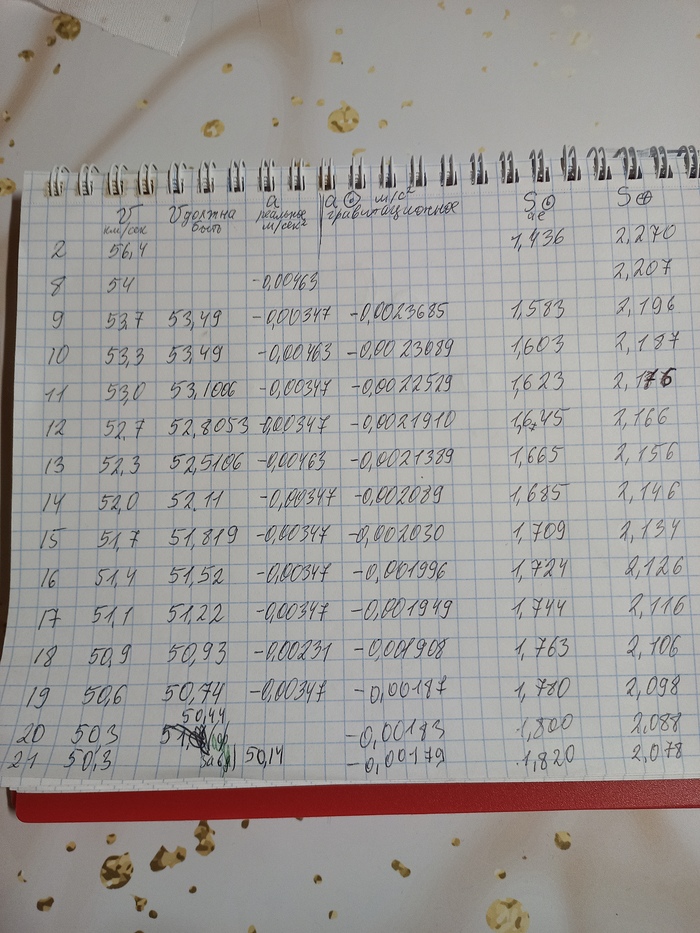 V Vдолжна a a ⊙ м/с² S⊙ S⊕
км/сек быть реальное м/сек² гравитационное ае
2 56,4 1,436 2,270
8 54 -0,00463 2,207
9 53,7 53,49 -0,00347 -0,0023685 1,583 2,196
10 53,3 53,49 -0,00463 -0,0023089 1,603 2,187
11 53,0 53,1006 -0,00347 -0,0022529 1,623 2,176
12 52,7 52,8053 -0,00347 -0,0021910 1,645 2,166
13 52,3 52,5106 -0,00463 -0,0021389 1,665 2,156
14 52,0 52,11 -0,00347 -0,002089 1,685 2,146
15 51,7 51,819 -0,00347 -0,002030 1,709 2,134
16 51,4 51,52 -0,00347 -0,001996 1,724 2,126
17 51,1 51,22 -0,00347 -0,001949 1,744 2,116
18 50,9 50,93 -0,00231 -0,001908 1,763 2,106
19 50,6 50,74 -0,00347 -0,00187 1,780 2,098
20 50,3 50,44 -0,00183 1,800 2,088
21 50,3 50,14 -0,00179 1,820 2,078